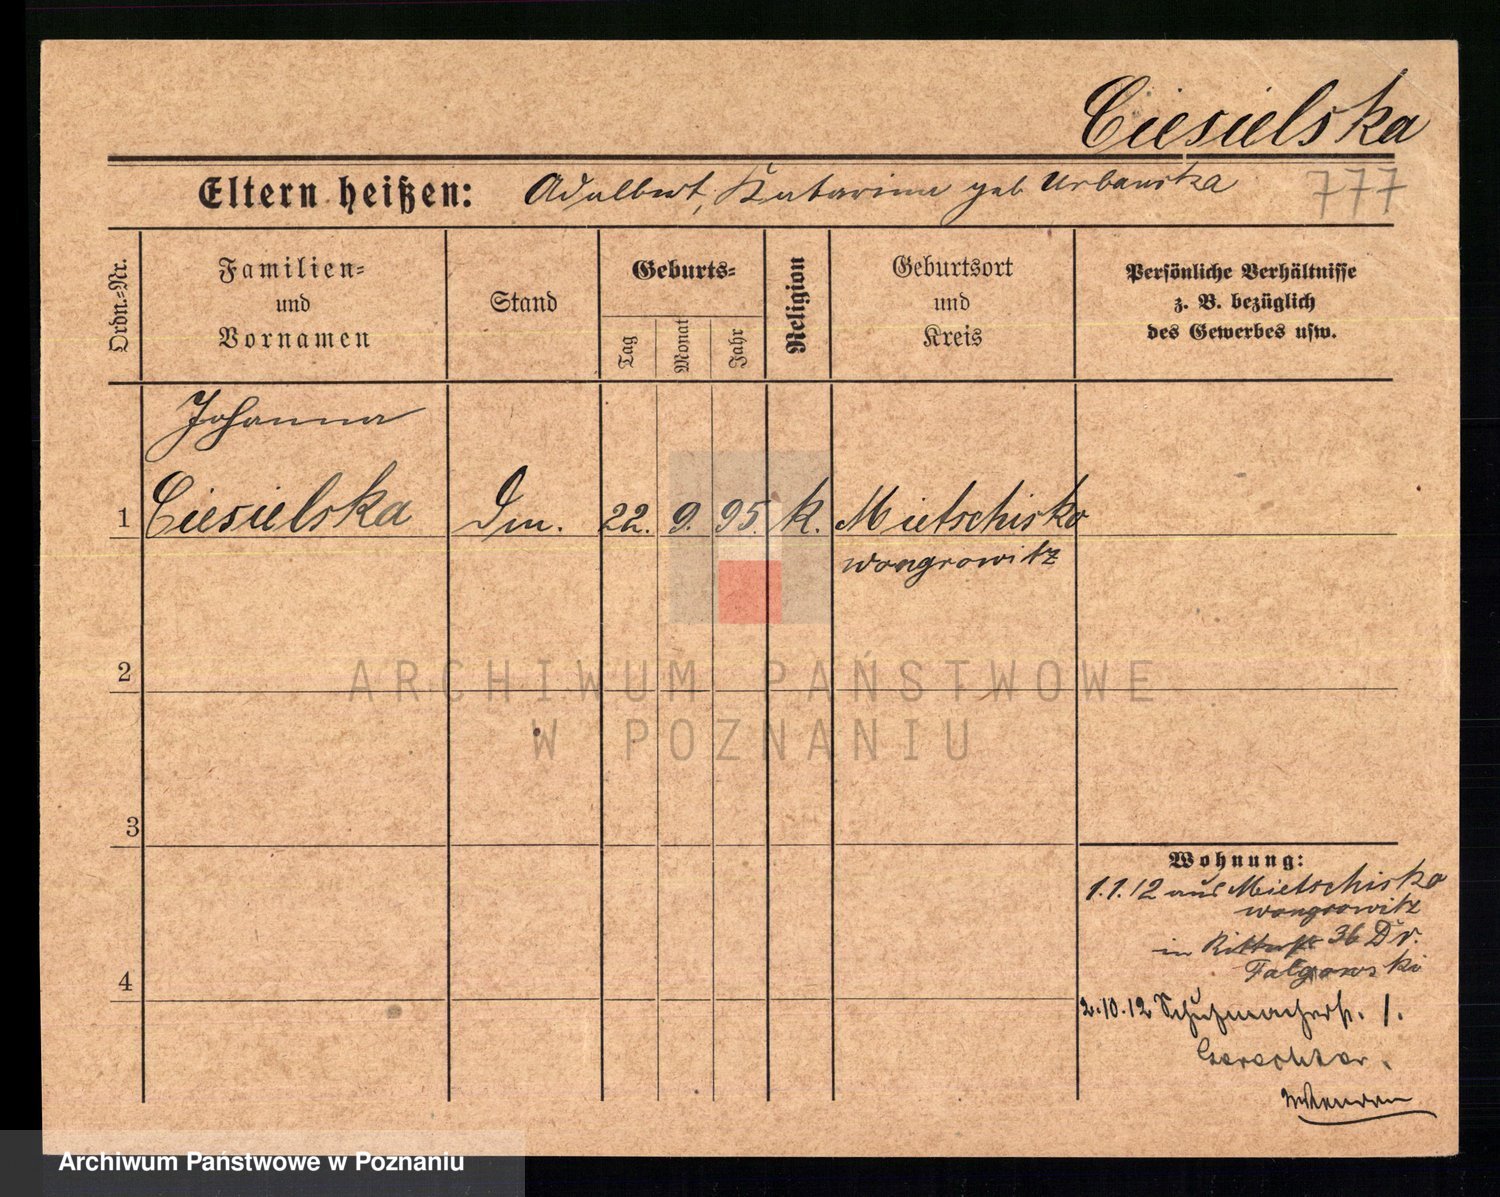 Ciesielska
Eltern heißen: Adalbert, Katarina geb Urbanska 777
Ordn.=Nr.
Familien=
und
Vornamen
Stand
Geburts=
Tag
Monat
Jahr
Religion
Geburtsort
und
Kreis
Persönliche Verhältnisse
z. B. bezüglich
des Gewerbes usw.
Johanna
1 Ciesielska Dm. 22. 9. 95. k. Mietschisko
Wongrowitz
2
3
4
Wohnung:
1.1.12 aus Mietschisko
Wongrowitz
in Ritterst 36 Dr.
2.10.12 Schuhmacherstr. 1.
ARCHIWUM PAŃSTWOWE
W POZNANIU
Archiwum Państwowe w Poznaniu